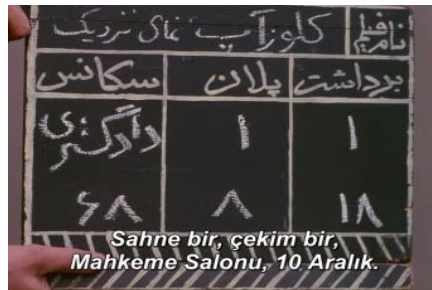 نام فیلم کلوزآپ نمای نزدیک
برداشت پلان سکانس
۱ ۱ دادگستری
۱۸ ۸ ۶۸
Sahne bir, çekim bir,
Mahkeme Salonu, 10 Aralık.